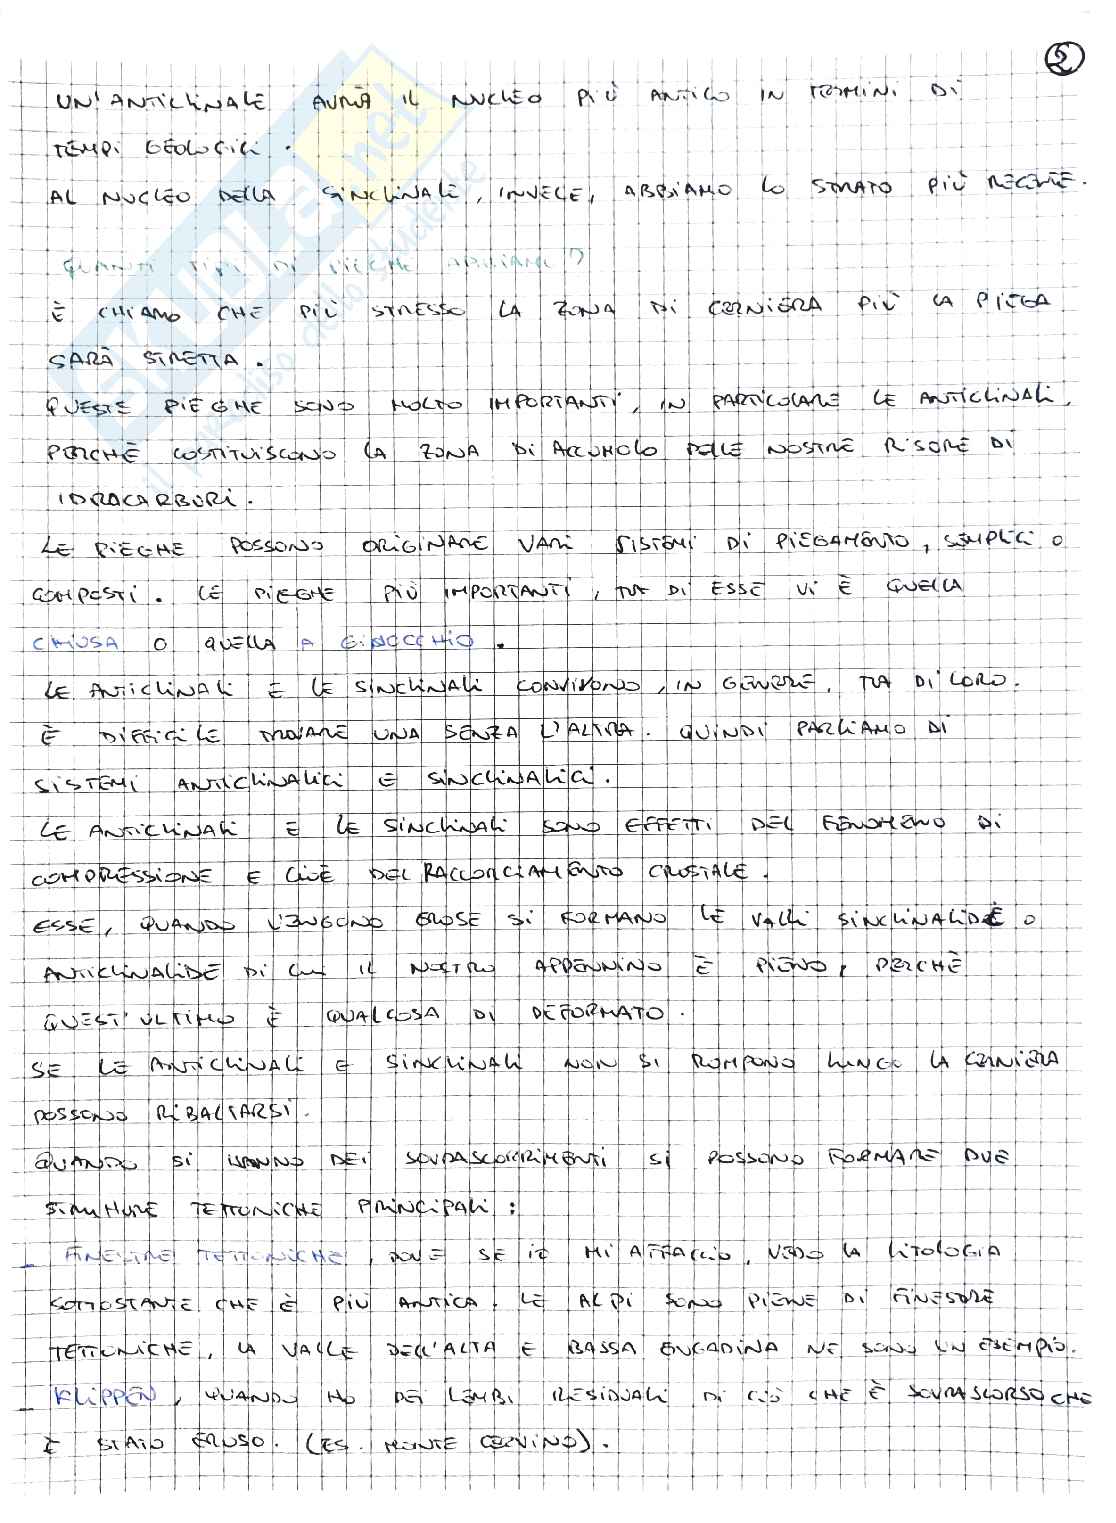 5
UN'ANTICLINALE AVRÀ IL NUCLEO PIÙ ANTICO IN TERMINI DI
TEMPI GEOLOGICI.
AL NUCLEO DELLA SINCLINALE, INVECE, ABBIAMO LO STRATO PIÙ RECENTE.
QUANTI TIPI DI PIEGHE ABBIAMO?
È CHIARO CHE PIÙ STRESSO LA ZONA DI CERNIERA PIÙ LA PIEGA
SARÀ STRETTA.
QUESTE PIEGHE SONO MOLTO IMPORTANTI, IN PARTICOLARE LE ANTICLINALI,
PERCHÈ COSTITUISCONO LA ZONA DI ACCUMOLO DELLE NOSTRE RISORE DI
IDRACARBURI.
LE PIEGHE POSSONO ORIGINARE VARI SISTEMI DI PIEGAMENTO, SEMPLICI O
COMPOSTI. LE PIEGHE PIÙ IMPORTANTI, TRA DI ESSE VI È QUELLA
CHIUSA O QUELLA A GINOCCHIO.
LE ANTICLINALI E LE SINCLINALI CONVIVONO, IN GENERE, TRA DI LORO.
È DIFFICILE TROVARE UNA SENZA L'ALTRA. QUINDI PARLIAMO DI
SISTEMI ANTICLINALICI E SINCLINALICI.
LE ANTICLINALI E LE SINCLINALI SONO EFFETTI DEL FENOMENO DI
COMPRESSIONE E CIOÈ DEL RACCORCIAMENTO CROSTALE.
ESSE, QUANDO VENGONO EROSE SI FORMANO LE VALLI SINCLINALIDE O
ANTICLINALIDE DI CUI IL NOSTRO APPENNINO È PIENO, PERCHÈ
QUEST'ULTIMO È QUALCOSA DI DEFORMATO.
SE LE ANTICLINALI E SINCLINALI NON SI ROMPONO LUNGO LA CERNIERA
POSSONO RIBALTARSI.
QUANDO SI HANNO DEI SOVRASCORRIMENTI SI POSSONO FORMARE DUE
STRUTTURE TETTONICHE PRINCIPALI:
- FINESTRE TETTONICHE, DOVE SE IO MI AFFACCIO, VEDO LA LITOLOGIA
SOTTOSTANTE CHE È PIÙ ANTICA. LE ALPI SONO PIENE DI FINESTRE
TETTONICHE, LA VALLE DELL'ALTA E BASSA ENGADINA NE SONO UN ESEMPIO.
- KLIPPEN, QUANDO HO DEI LEMBI RESIDUALI DI CIÒ CHE È SOVRASCORSO CHE
È STATO EROSO. (ES. MONTE CERVINO).
SKUOLA.net
il paradiso dello studente